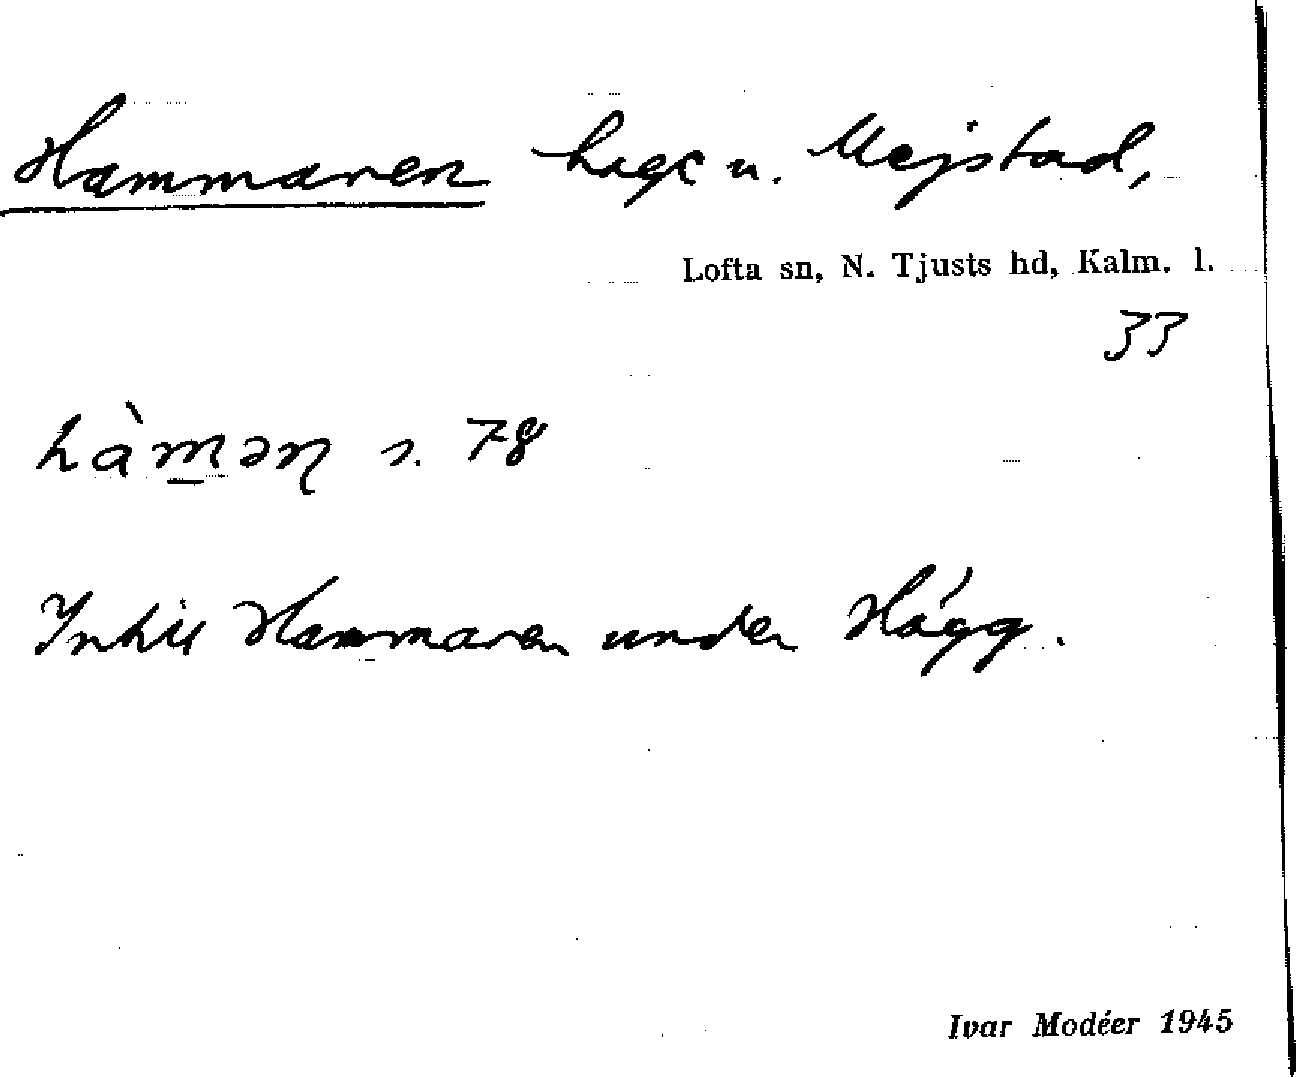 Hammaren hage u. Mejstad,
Lofta sn, N. Tjusts hd, Kalm. l.
33
hàm̲əɳ s. 78
Intill Hammaren under Hägg.
Ivar Modéer 1945